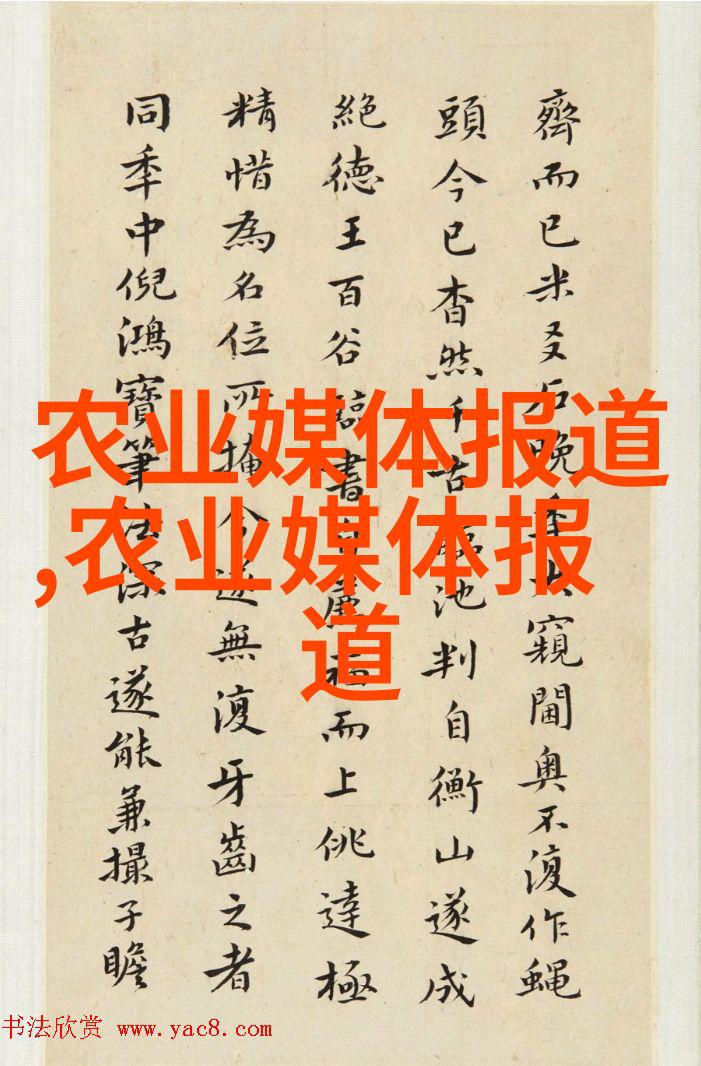 齊而已米友石晚年大窺閫奥不復作蝇
頭今已杳然千古臨池判自衡山遂成
絶德王百谷書而上佻達極
精惜為名位所掩今遂無復牙齒之者
同年中倪鴻寶筆法深古遂能兼撮子瞻
农业媒体报道
,农业媒体报
道
书法欣赏 www.yac8.com